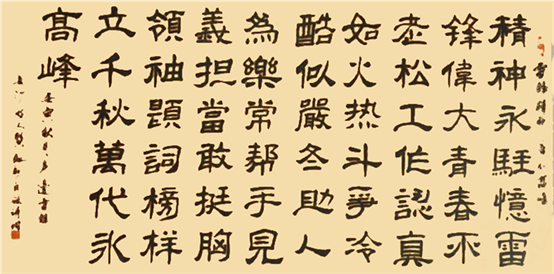 精神永駐憶雷
鋒偉大青春不
老松工作認真
如火热斗爭冷
酷似嚴冬助人
為樂常帮手見
義担當敢挺胸
領袖題詞榜样
立千秋萬代永
高峰